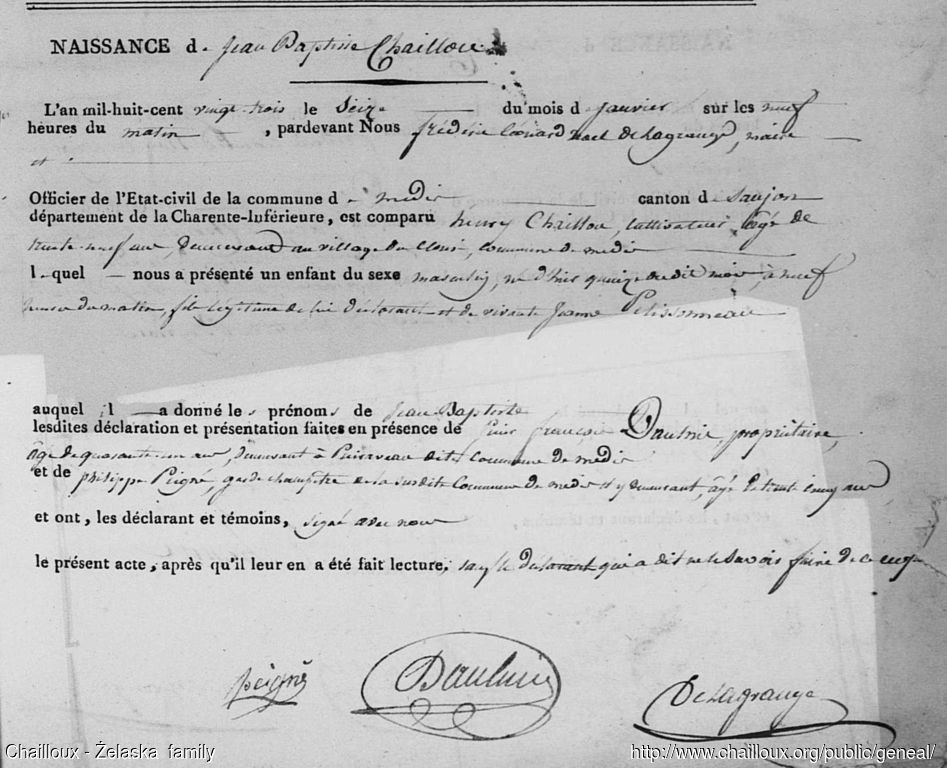 NAISSANCE de Jean Baptiste Chaillou
L'an mil-huit-cent vingt-trois le Seize du mois de Janvier sur les neuf
heures du matin , pardevant Nous frédéric Noël de Lagrange, maire
et
Officier de l'Etat-civil de la commune de medis canton de Saujon
département de la Charente-Inférieure, est comparu henry Chaillou, Cultivateur, âgé de
trente-neuf ans, demeurant au village du commune de medis
lequel nous a présenté un enfant du sexe masculin, né d'hier quinze du dit mois, à neuf
heures du matin, fils légitime de lui déclarant et de vivante Jeanne Pelissonneau
auquel il a donné les prénoms de Jean Baptiste
lesdites déclaration et présentation faites en présence de françois Daulnie, propriétaire,
âgé de quarante-un ans, demeurant à dite Commune de medis
et de philippe Peigné, garde champêtre de la susdite Commune de medis et y demeurant, âgé de trente cinq ans
et ont, les déclarant et témoins, signé avec nous
le présent acte, après qu'il leur en a été fait lecture, sauf le déclarant qui a dit ne le savoir faire de ce enquis
Peigné Daulnie DeLagrange
Chailloux - Żelaska family http://www.chailloux.org/public/geneal/